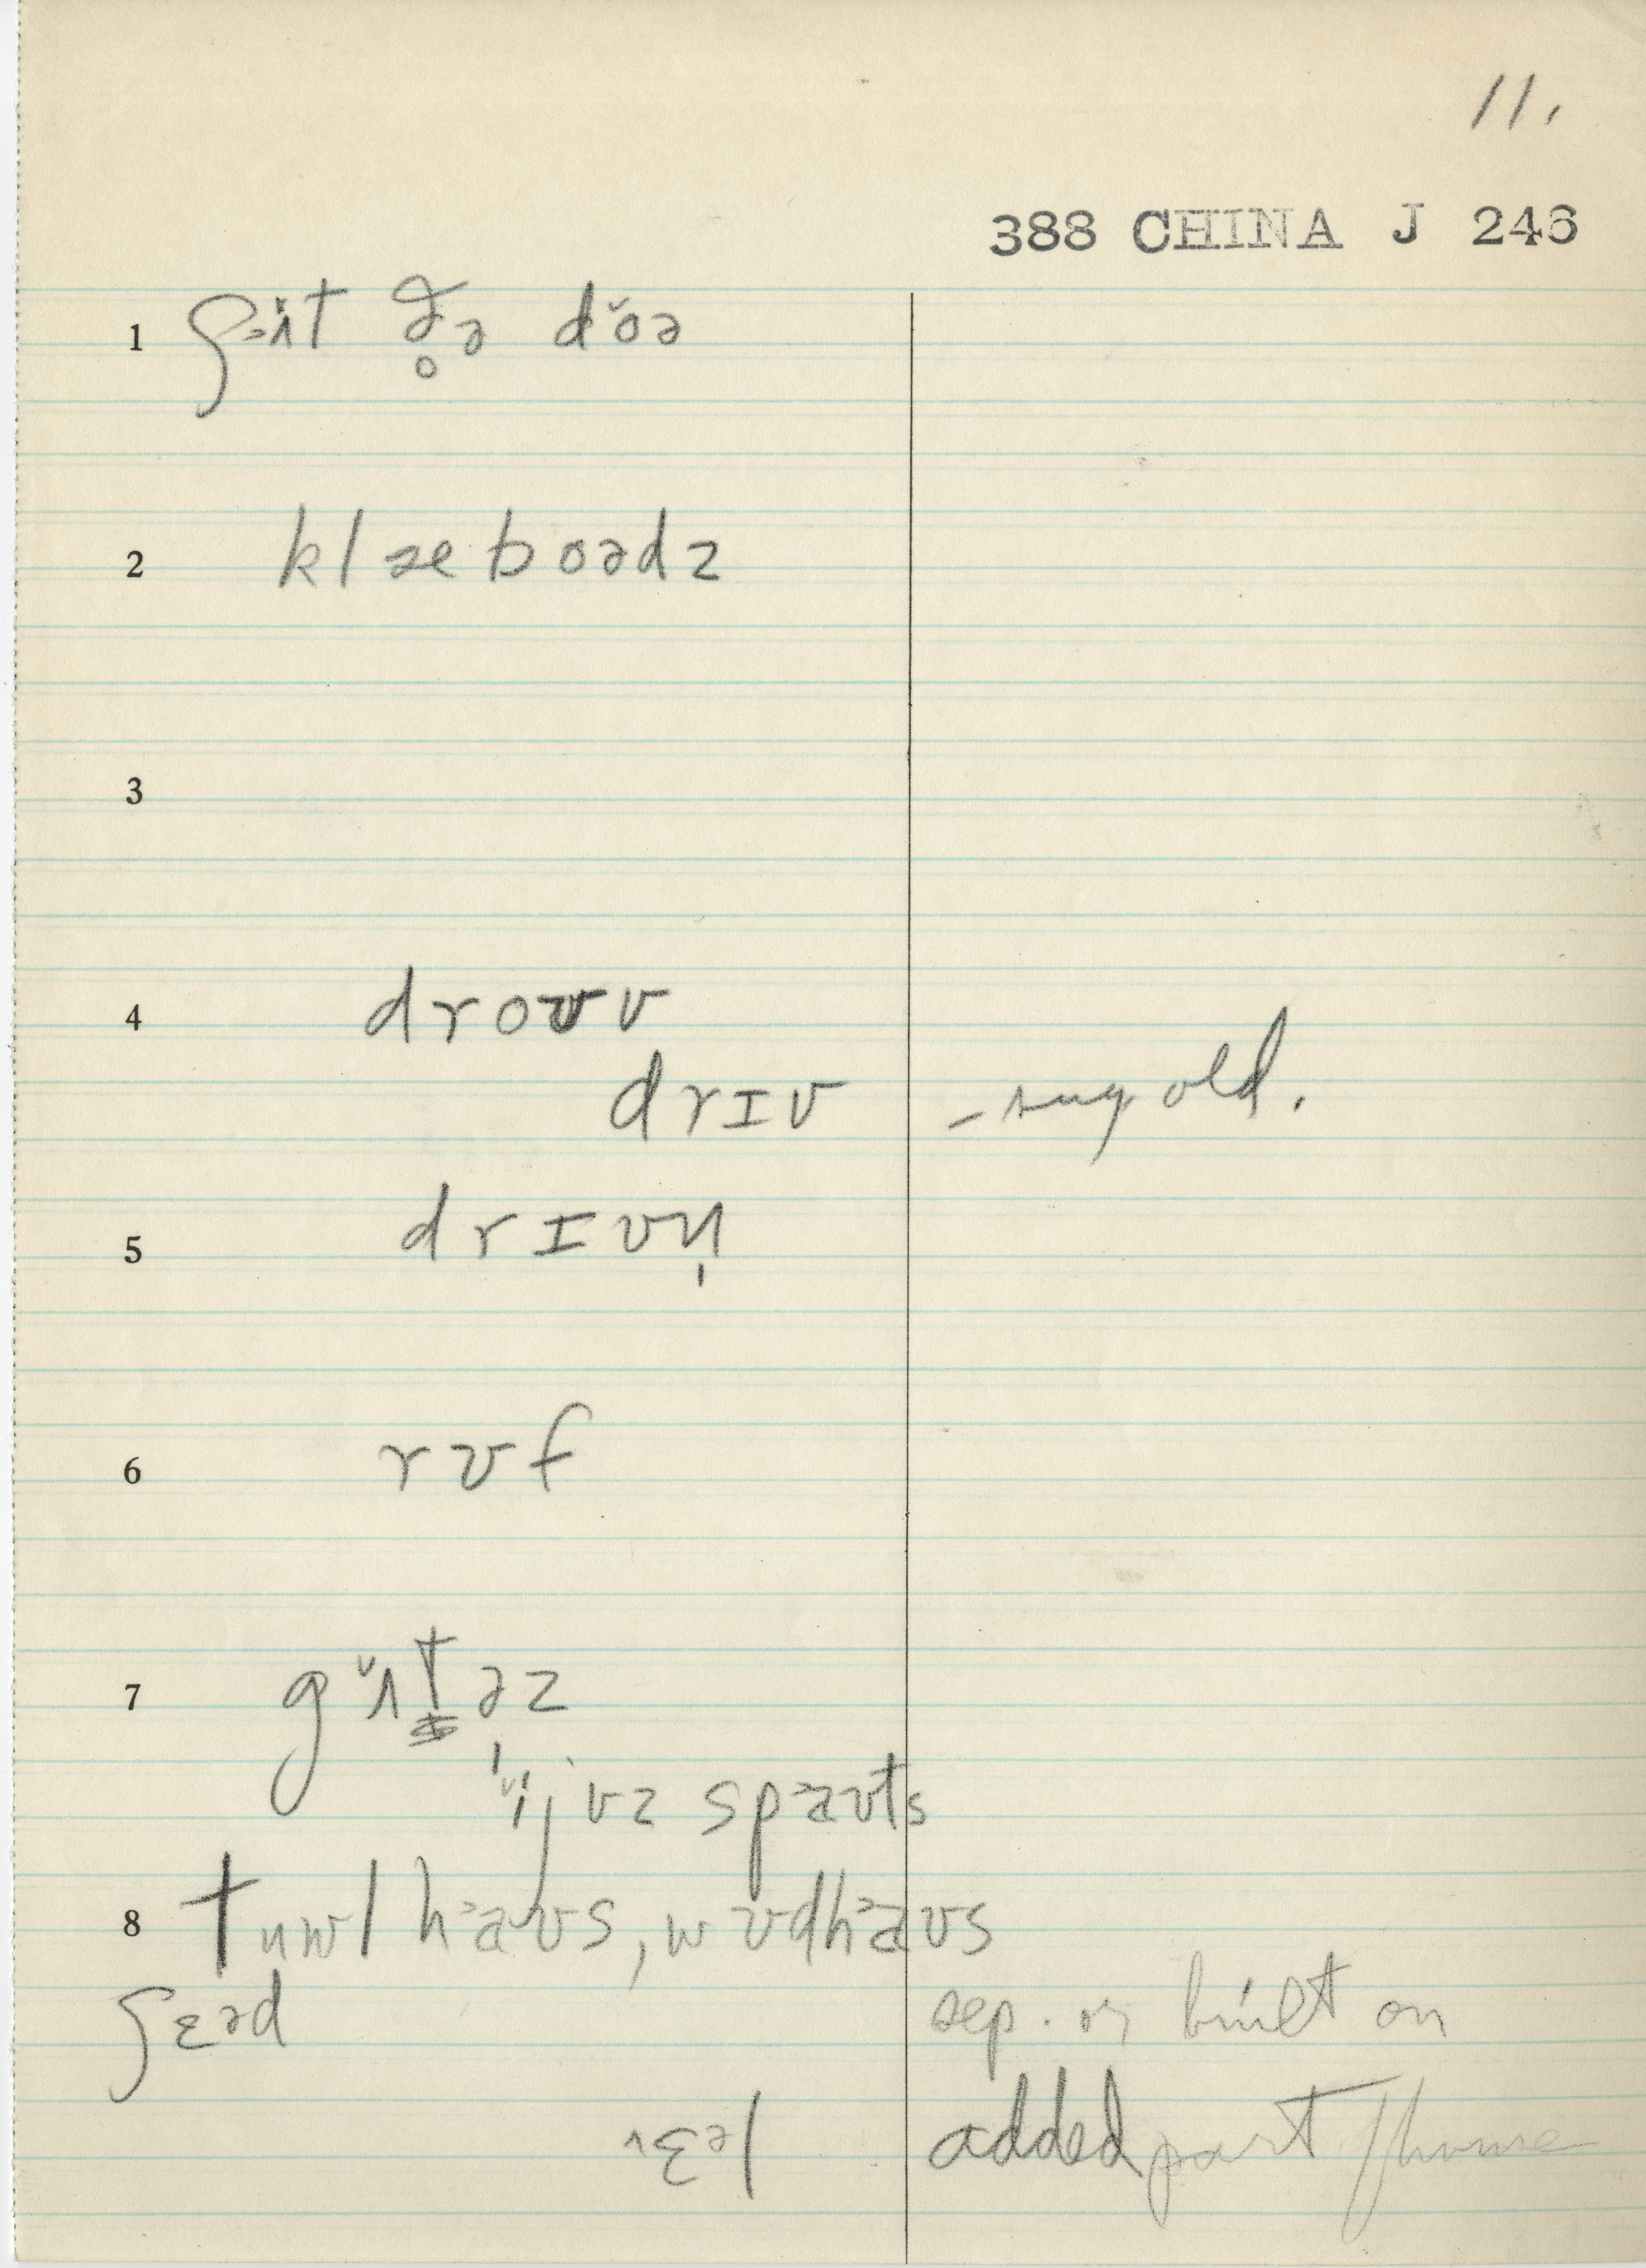 11.
388 CHINA J 246
1 ʃɜɨt ð̥ə dŏə
2 klæboədz
3
4 droʊv
drɪv - sug. old.
5 drɪvn̩
6 rʊf
7 gʌtəz
spaʊts
8 tuwl haʊs, wʊdhaʊs
ʃɛəd sep. or built on
ɛəl added part / house